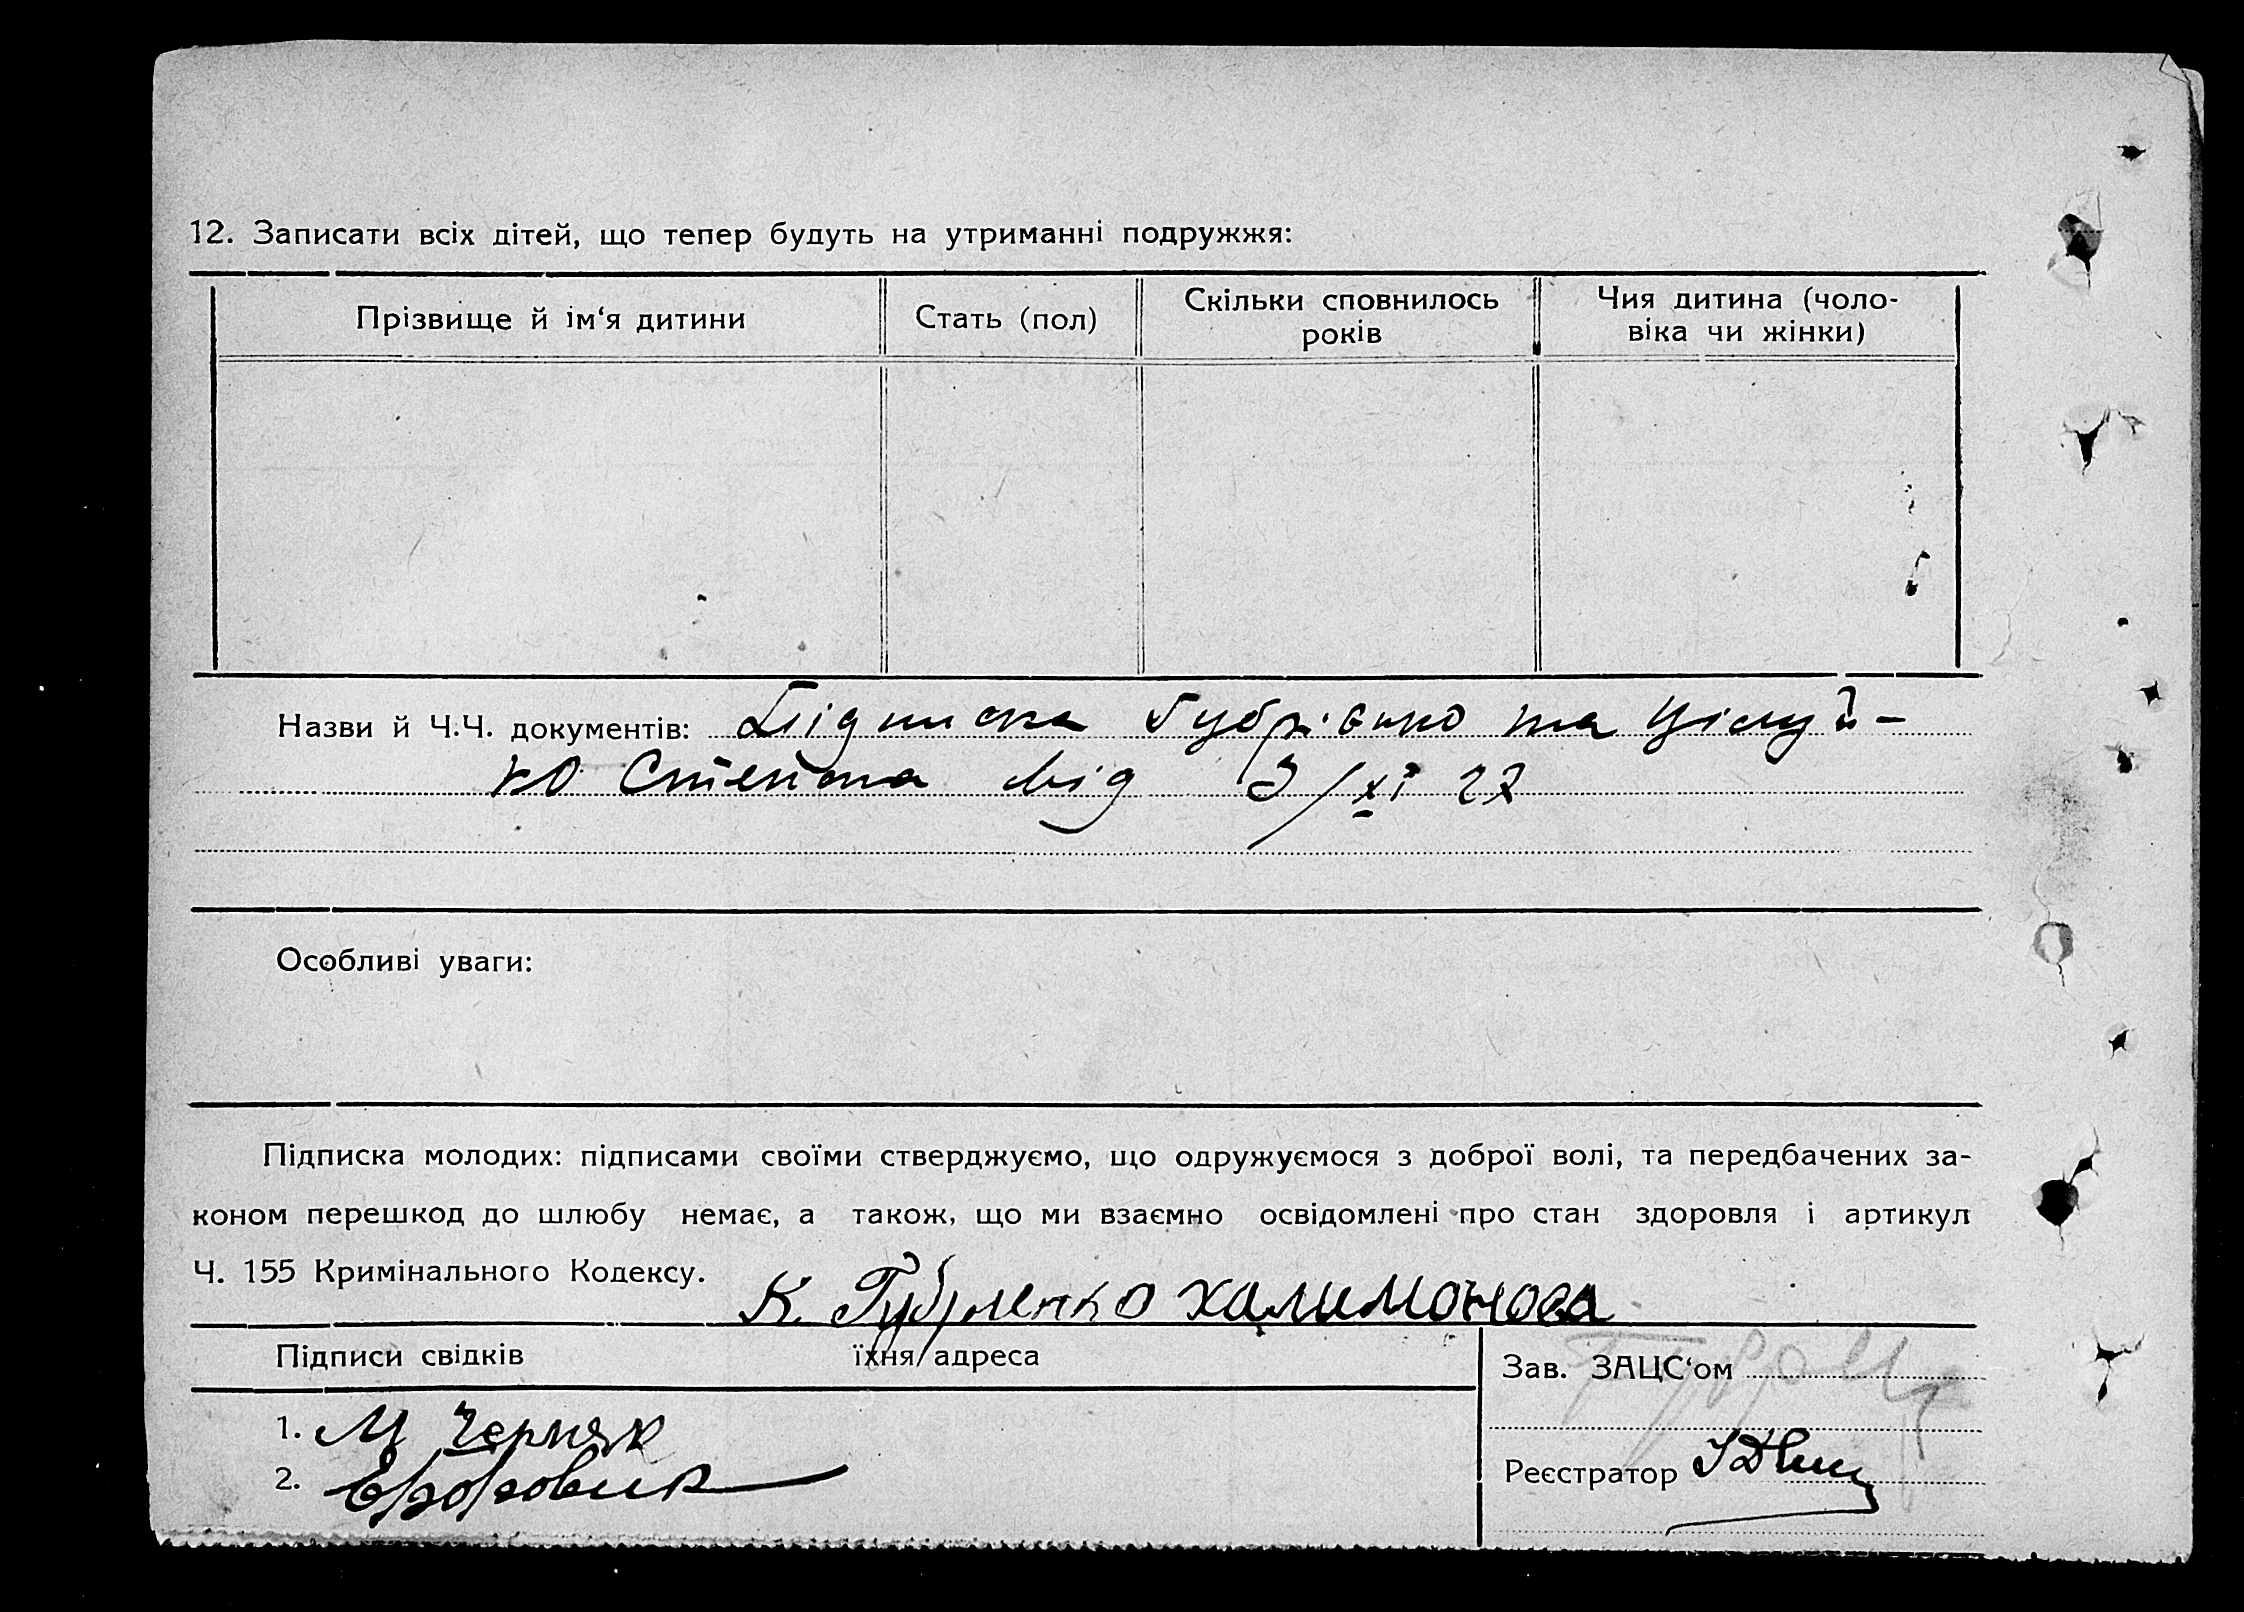 12. Записати всіх дітей, що тепер будуть на утриманні подружжя:
Прізвище й ім‘я дитини
Стать (пол)
Скільки сповнилось
років
Чия дитина (чоло-
віка чи жінки)
Назви й Ч.Ч. документів: Підписка Губрієнко та Цілуй-
ко Степана від 3/XI 27
Особливі уваги:
Підписка молодих: підписами своїми стверджуємо, що одружуємося з доброї волі, та передбачених за-
коном перешкод до шлюбу немає, а також, що ми взаємно освідомлені про стан здоровля і артикул
Ч. 155 Кримінального Кодексу.
К. Губриенко Халимонова
Підписи свідків
їхня адреса
Зав. ЗАЦС‘ом
1. М Черняк
2.
Реєстратор